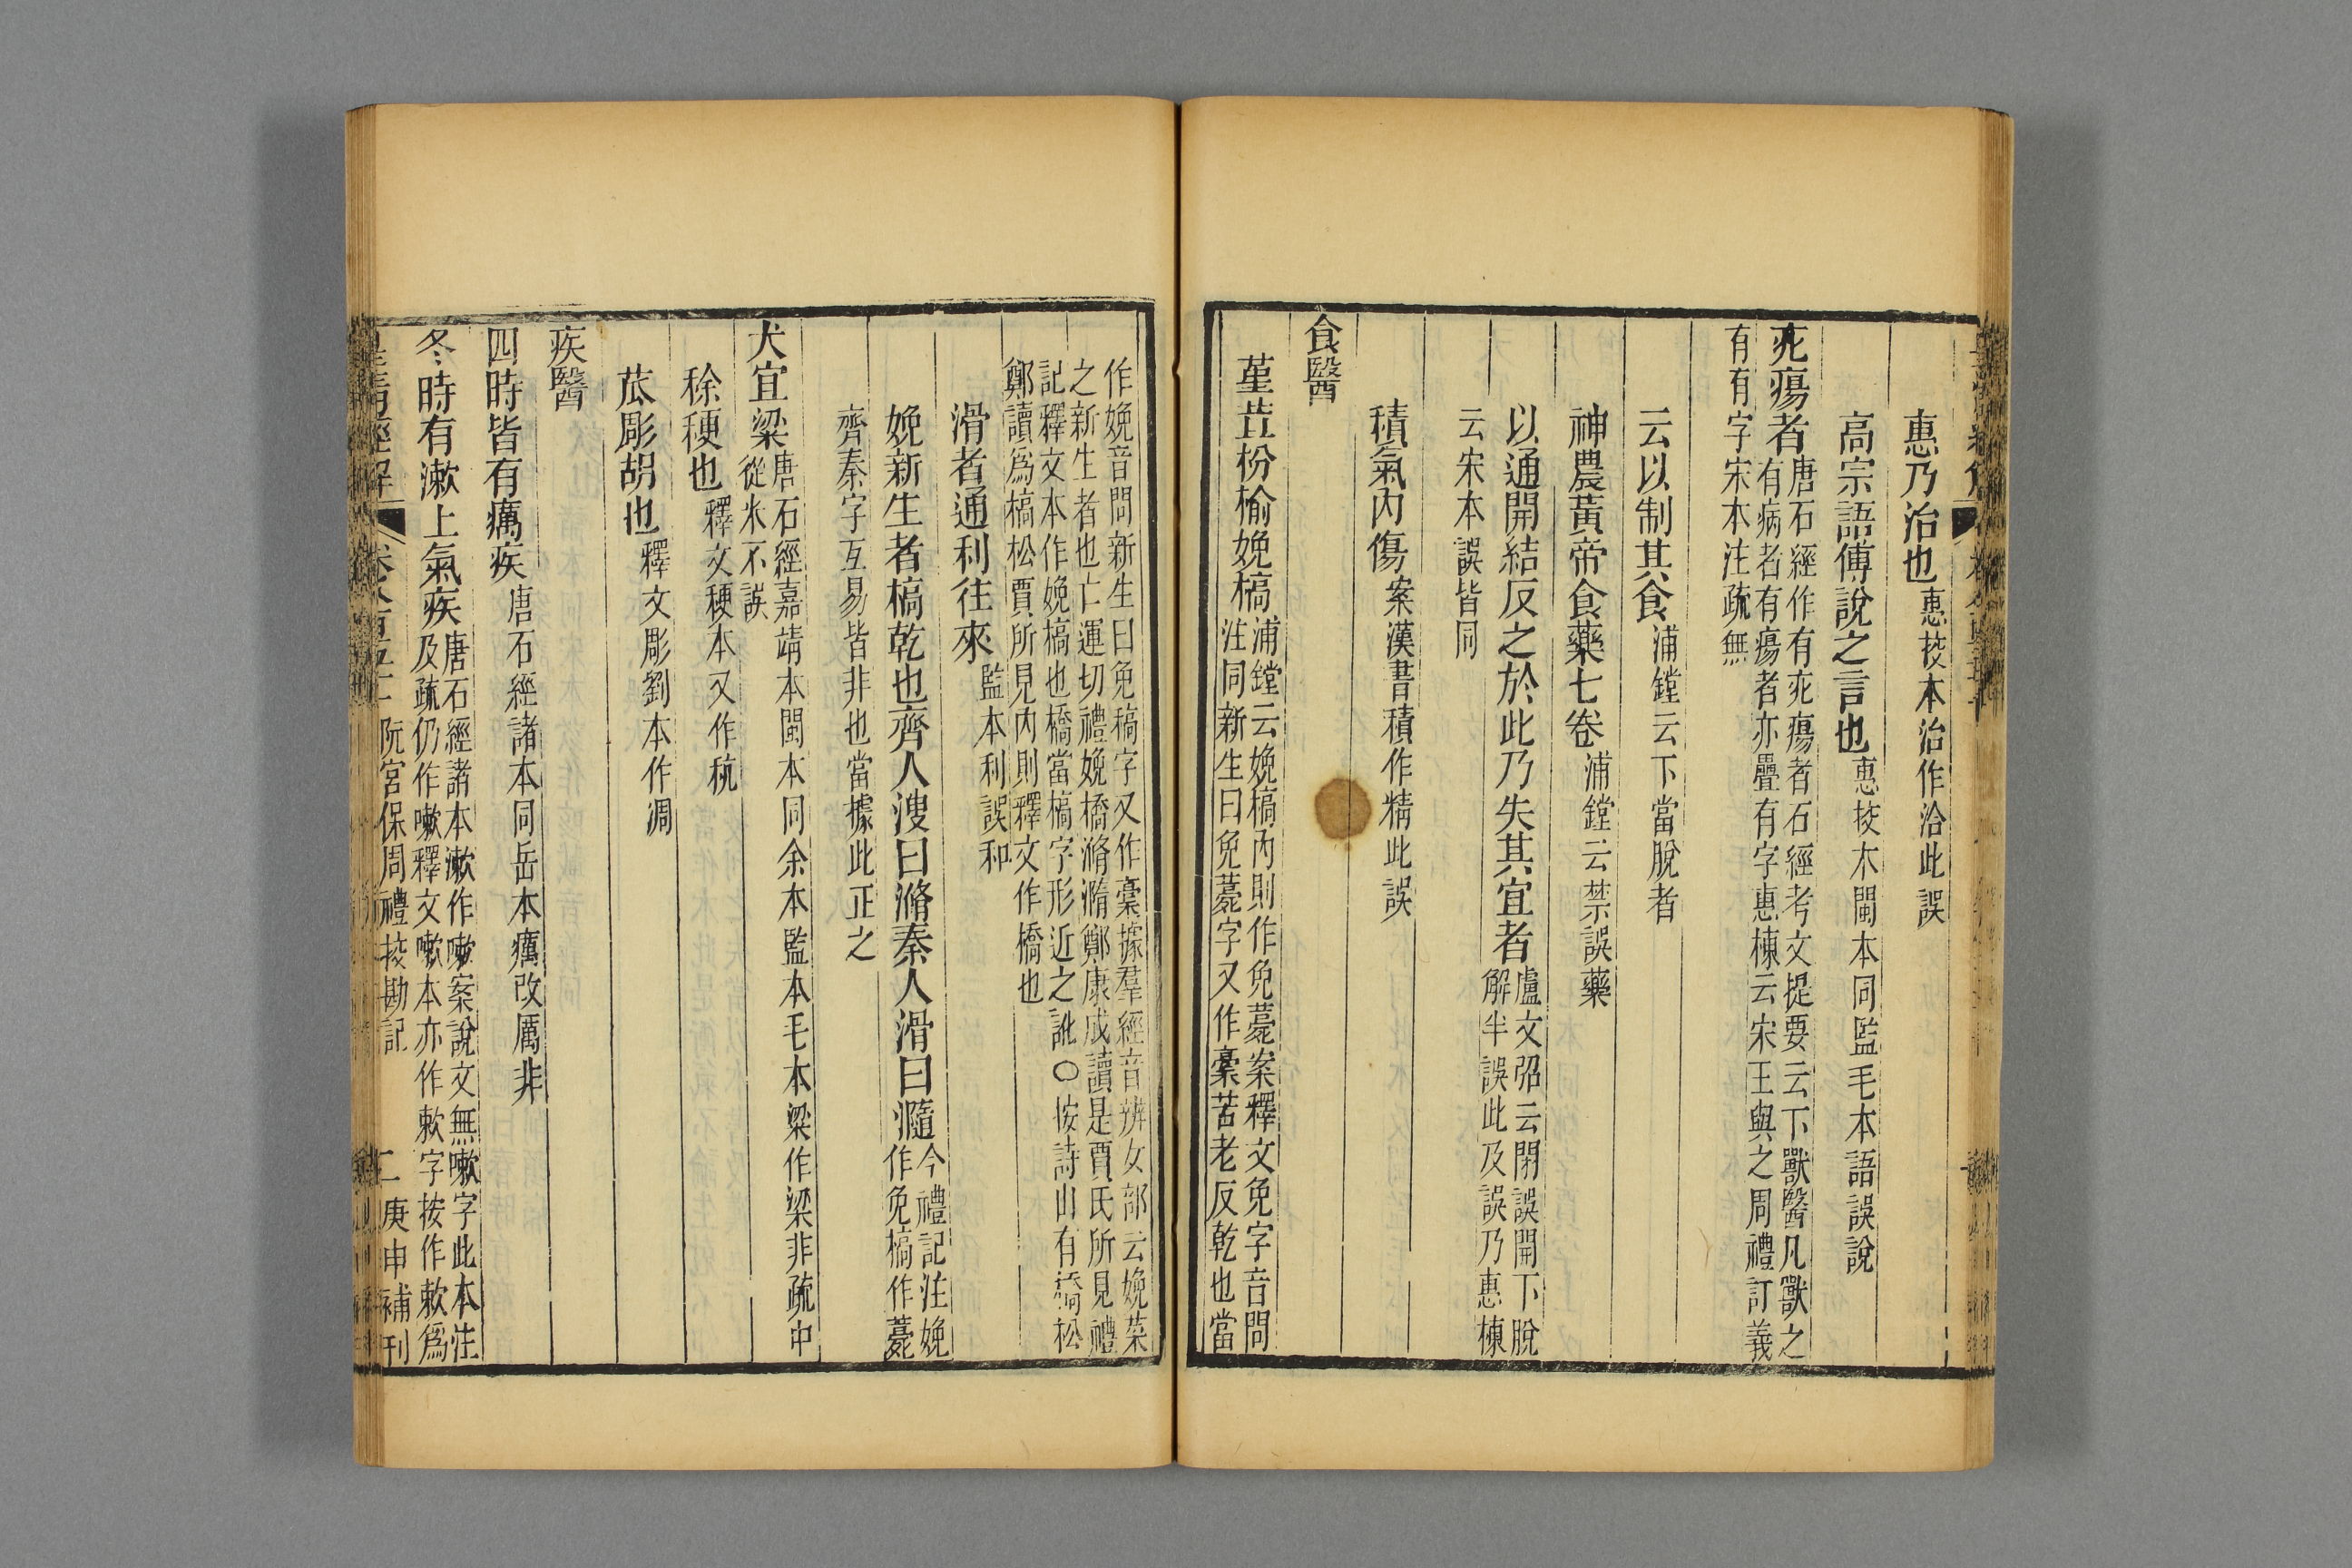 惠乃治也惠挍本治作治此誤
高宗語傅說之言也惠挍本閩本同監毛本語誤說
疕瘍者唐石經作有疕瘍者石經考文提要云下獸醫凡獸之
有病者有瘍者亦疊有字惠棟云宋王與之周禮訂義
有有字宋本注疏無
云以制其食浦鏜云下當脫者
神農黃帝食藥七卷浦鏜云禁誤藥
以通開結反之於此乃失其宜者盧文弨云閉誤開下脫
解半誤此及誤乃惠棟
云宋本誤皆同
積氣內傷案漢書積作精此誤
食醫
堇荁枌榆娩槁浦鏜云娩槁內則作免薧案釋文免字音問
注同新生曰免薧字又作槀苦老反乾也當
作娩音問新生曰免稿字又作槀據羣經音辨女部云娩菜
之新生者也亡運切禮娩橋滫瀡鄭康成讀是賈氏所見禮
記釋文本作娩槁也橋當槁字形近之訛〇按詩山有橋松
鄭讀爲槁松賈所見內則釋文作橋也
滑者通利往來監本利誤和
娩新生者槁乾也齊人溲曰滫秦人滑曰瀡今禮記注娩
作免槁作薧
齊秦字互易皆非也當據此正之
犬宜粱唐石經嘉靖本閩本同余本監本毛本粱作梁非疏中
從米不誤
稌稉也釋文稉本又作秔
苽彫胡也釋文彫劉本作凋
疾醫
四時皆有癘疾唐石經諸本同岳本癘改厲非
冬時有漱上氣疾唐石經諸本漱作嗽案說文無嗽字此本注
及疏仍作嗽釋文嗽本亦作欶字按作欶爲
皇清經解 卷八百五十一 阮宮保周禮挍勘記 二 庚申補刊